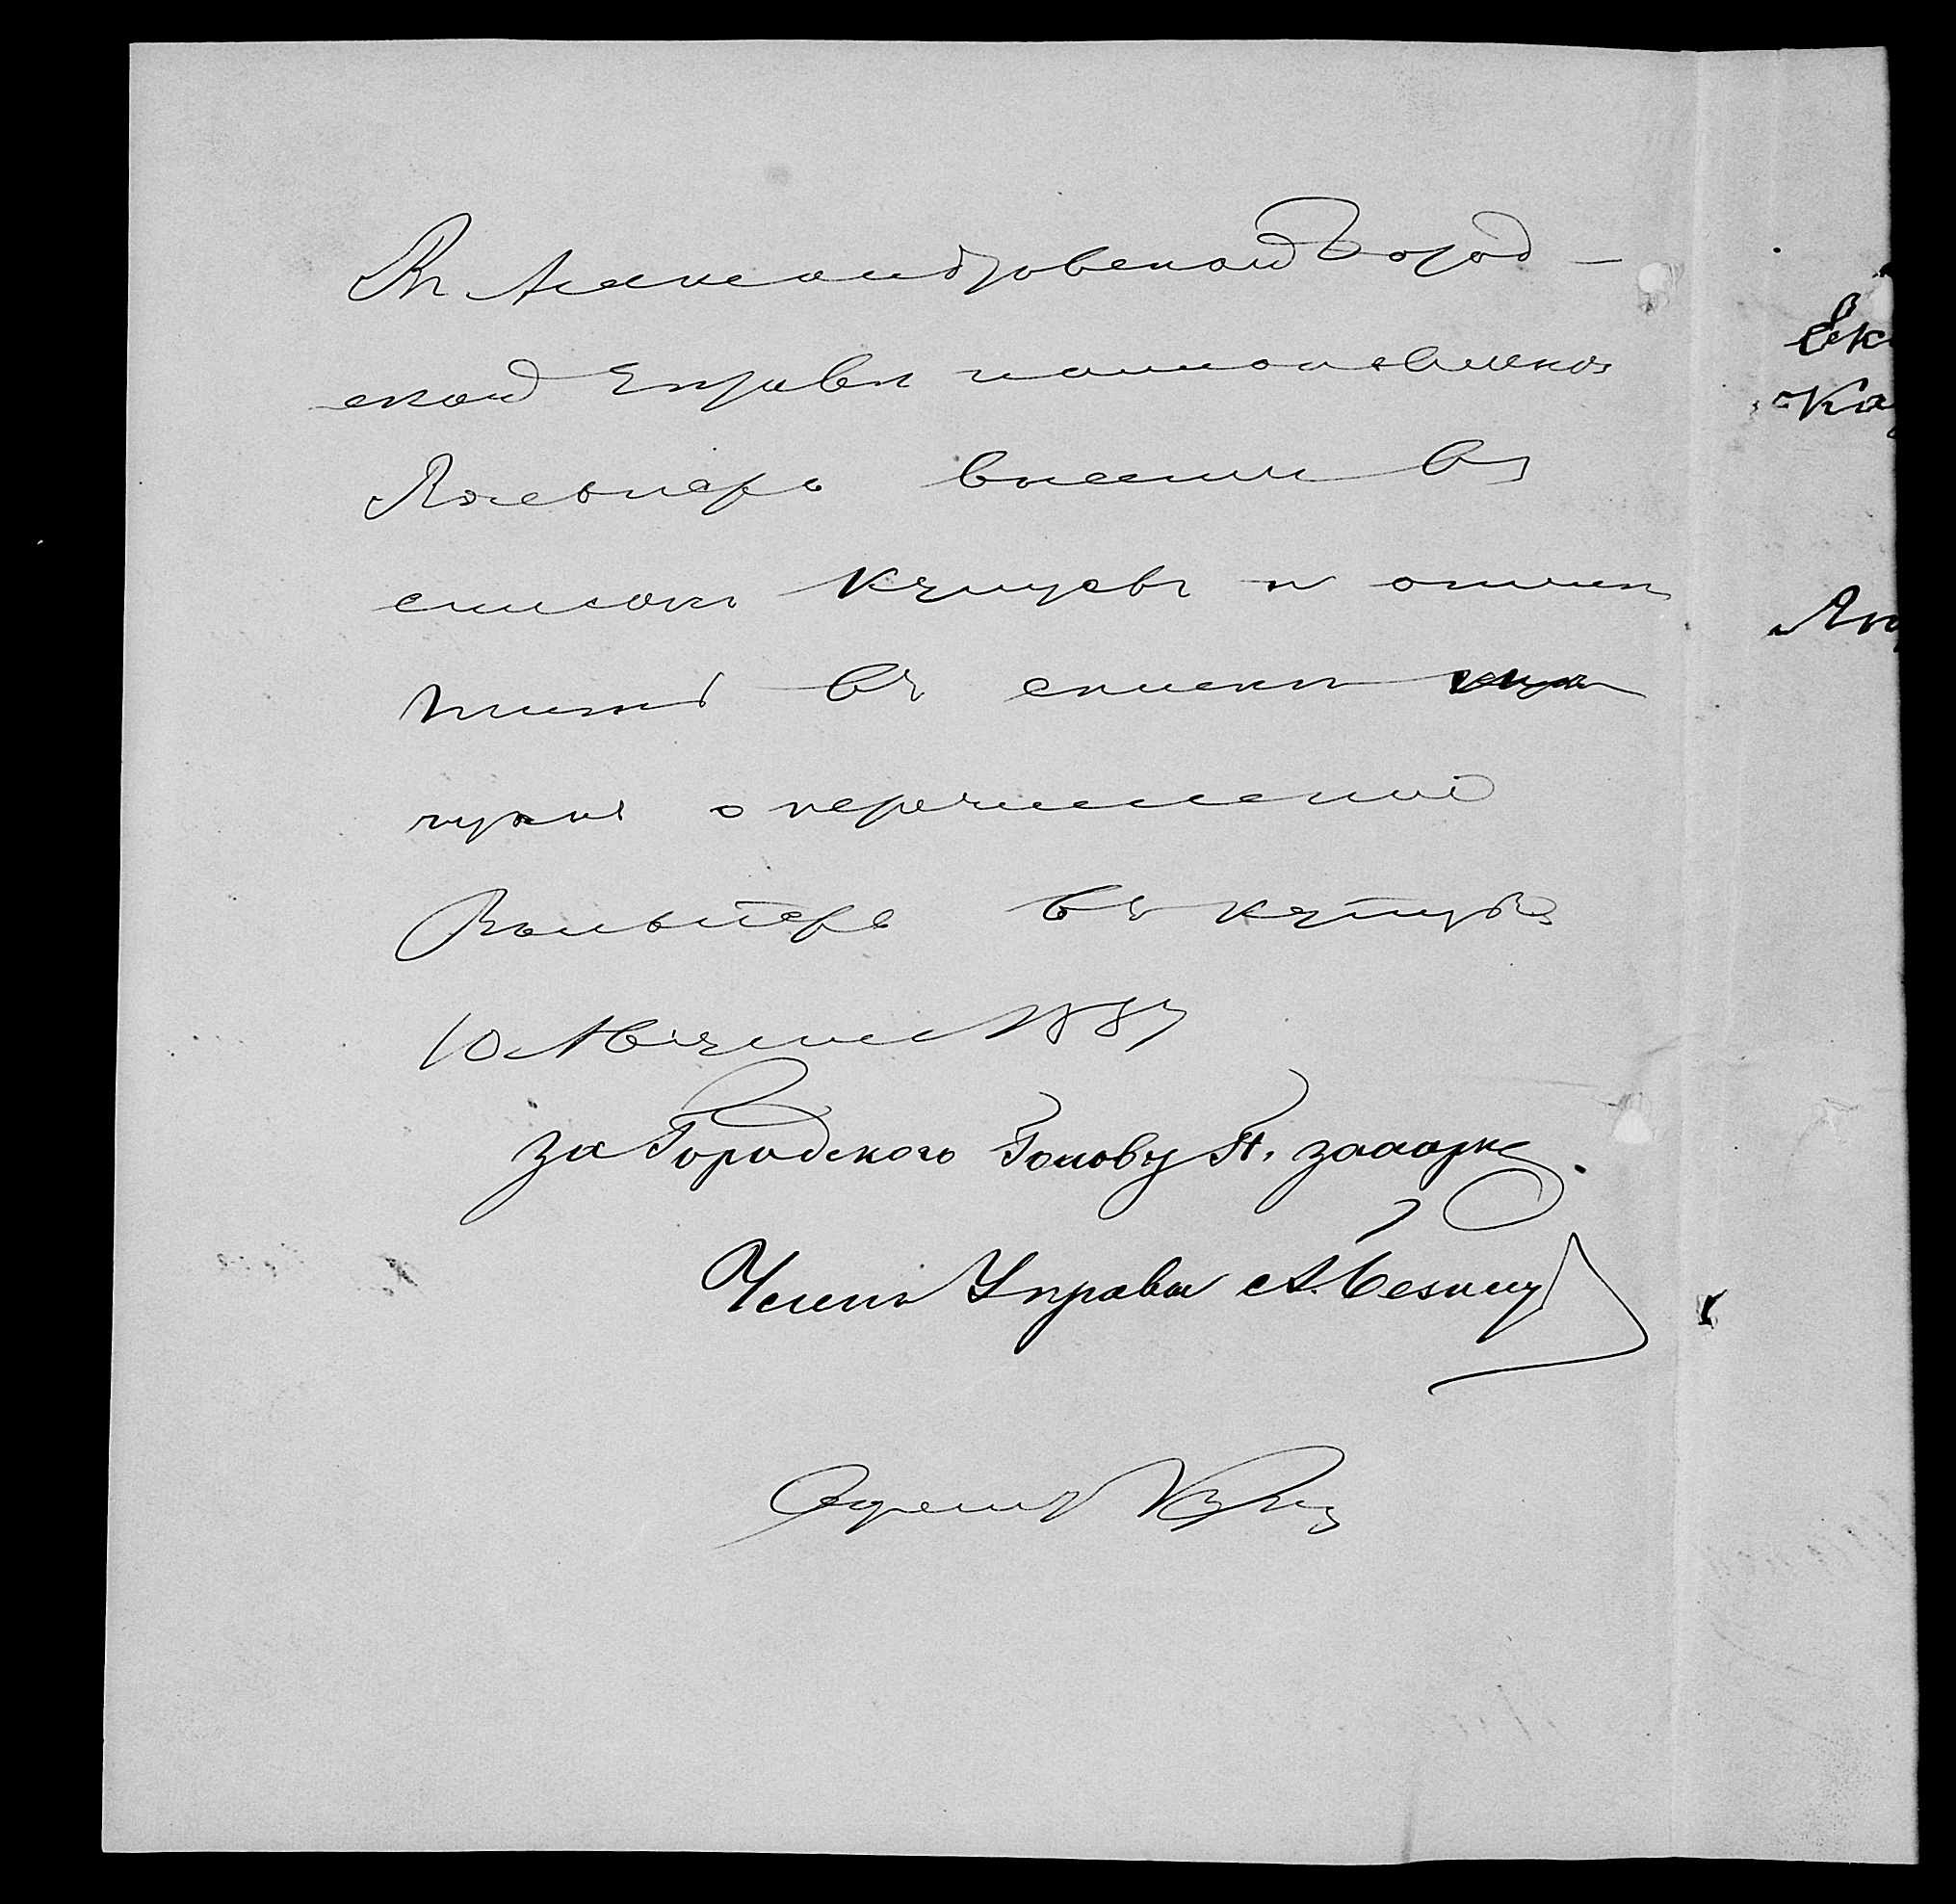 Въ Александровской Город-
ской Управѣ постановлено
Вальтера внести въ
списокъ купцовъ и отмѣ
тить въ спискѣ
о перечисленіи
Вальтера въ купцы
10 Августа 1887
За Городского Голову П.
Членъ Управы А.
Ека
Ка